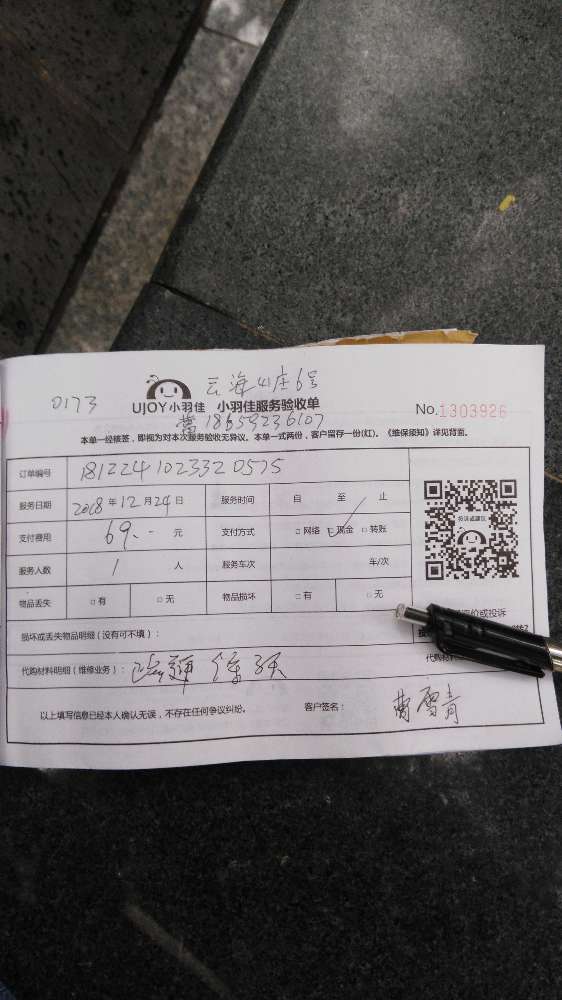 0173
云海山庄6号
UJOY小羽佳 小羽佳服务验收单
No.1303926
曹18659236107
本单一经核签，即视为对本次服务验收无异议。本单一式两份，客户留存一份(红)。《维保须知》详见背面。
订单编号 181224102332 0575
服务日期 2018年12月24日 服务时间 自 至 止
支付费用 69.- 元 支付方式 □网络 □现金 □转账
服务人数 1 人 服务车次 车/次
物品丢失 □有 □无 物品损坏 □有 □无
投诉或建议
价或投诉
损坏或丢失物品明细（没有可不填）：
代购材料明细（维修业务）：
以上填写信息已经本人确认无误，不存在任何争议纠纷。 客户签名：